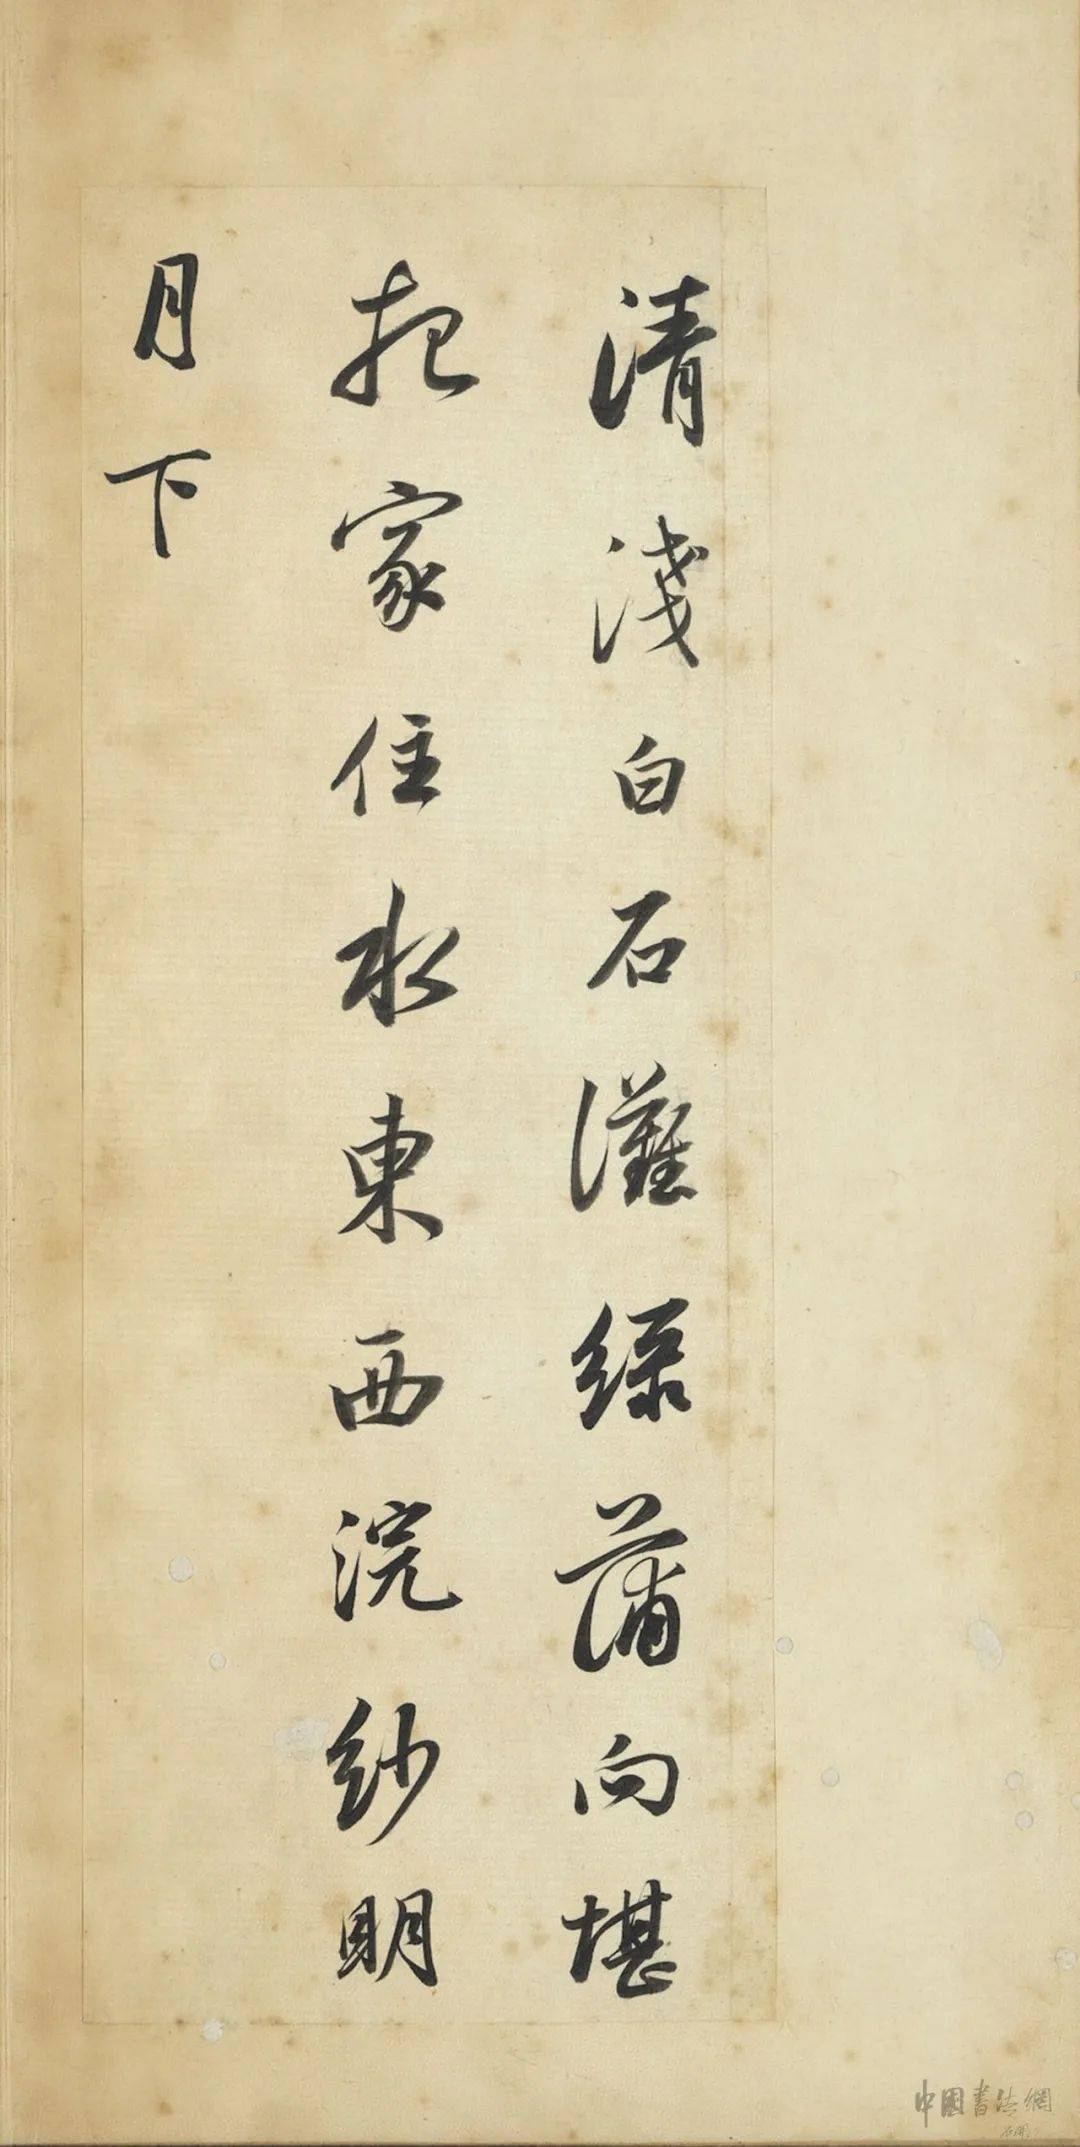 清淺白石灘綠蒲向堪
把家住水東西浣紗明
月下
中國書法網